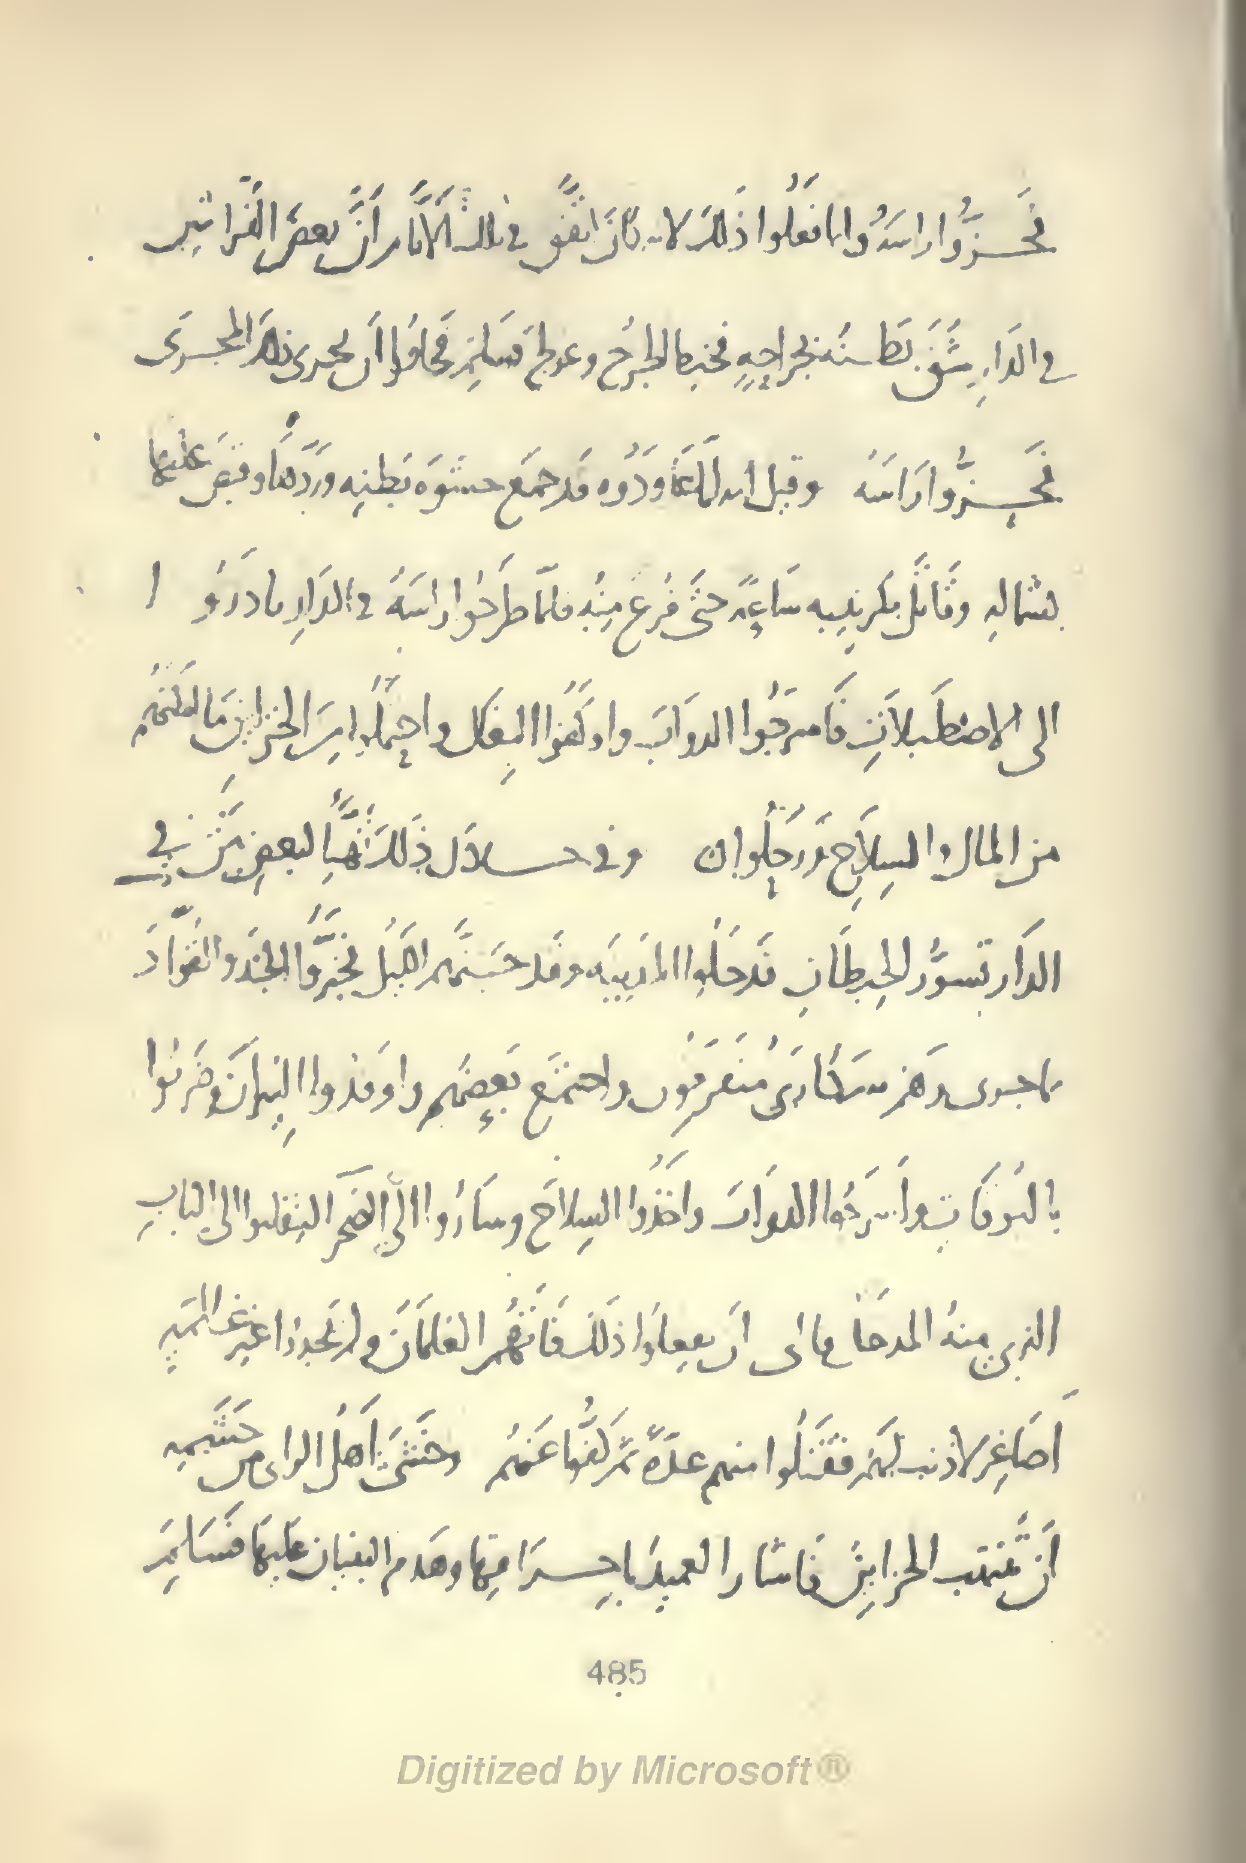 فحزّوا راسه وانما فعلوا ذلك لانه كان اتفق في تلك الايام ان بعض الفراشين
في الدار شق بطنه بجراحه فخيط الجرح وعولج فسلم فخافوا ان يجرى ذلك المجرى
فحزّوا راسه وقيل انه لما عاودوه قد جمع حشوة بطنه وردها وقبض عليها
بشماله وقاتل بكرنيبه ساعة حتى فرغ منه فلما طرحوا راسه في الدار بادروا
الى الاصطبلات فاسرجوا الدواب واوكفوا البغال واحتملوا من الخزاين ما امكنهم
من المال والسلاح ورحلوا ن وفي خلال ذلك تهيأ لبعض من في
الدار تسور الحيطان فدخلوا المدينه وقد جنهم الليل فخبروا الجند والقواد
بما جرى وهم سكارى متفرقون واجتمع بعضهم واوقدوا النيران وضربوا
بالبوقات واسرجوا الدواب واخذوا السلاح وساروا الى الصحراء
الذي منه المدخل فالى ان يفعلوا ذلك فاتهم الغلمان ولم يجدوا غير
اصاغر لا ذنب لهم فقتلوا منهم عدة ثم كفوا عنهم وخشى اهل الراى من حشمه
ان تنتهب الخزاين فاشار العميد باحراقها وهدم البنيان عليها فسلم
485
Digitized by Microsoft®